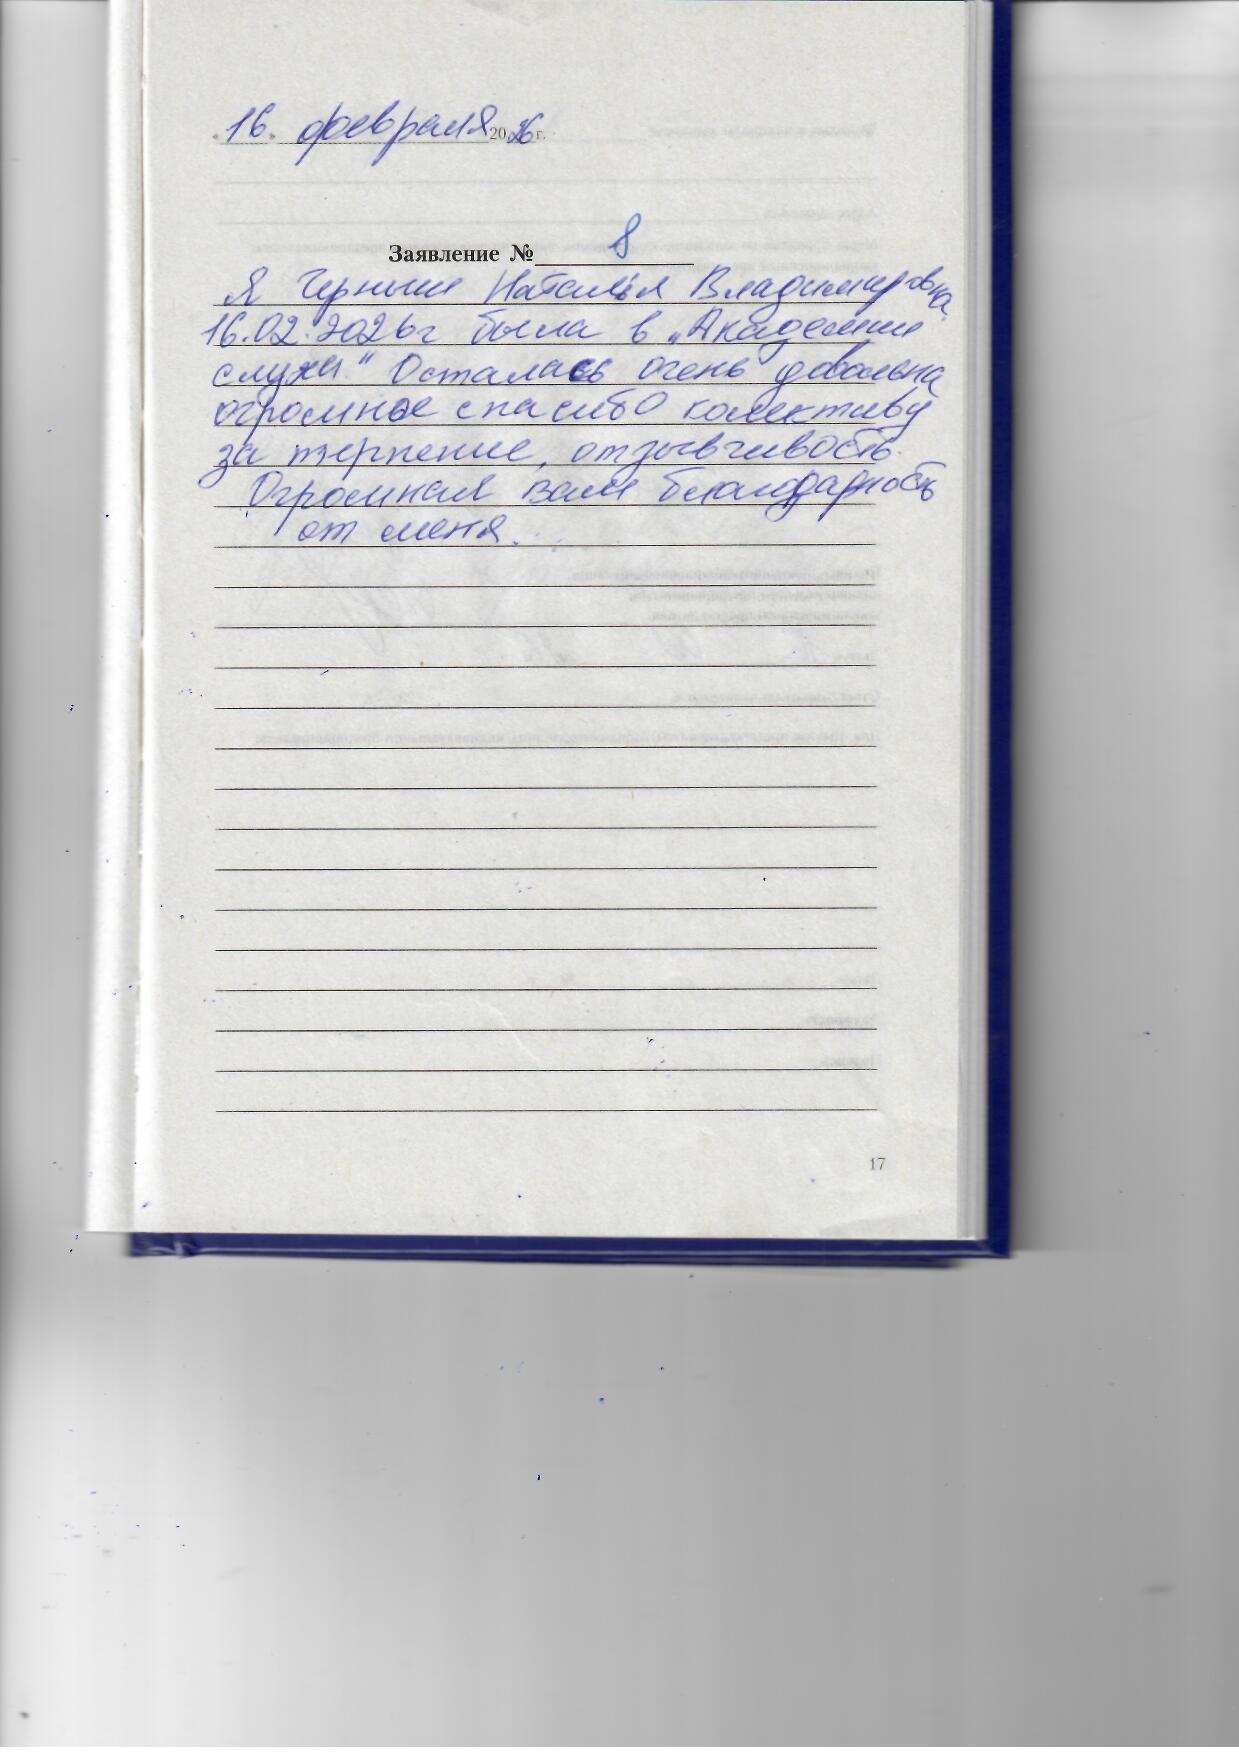 «16» февраля 2026 г.
Заявление № 8
Я Черныш Наталья Владимировна
16.02.2026г была в „Академии
слуха" Осталась очень довольна
огромное спасибо колективу
за терпение, отзывчивость.
Огромная вам благодарность
от меня.
17